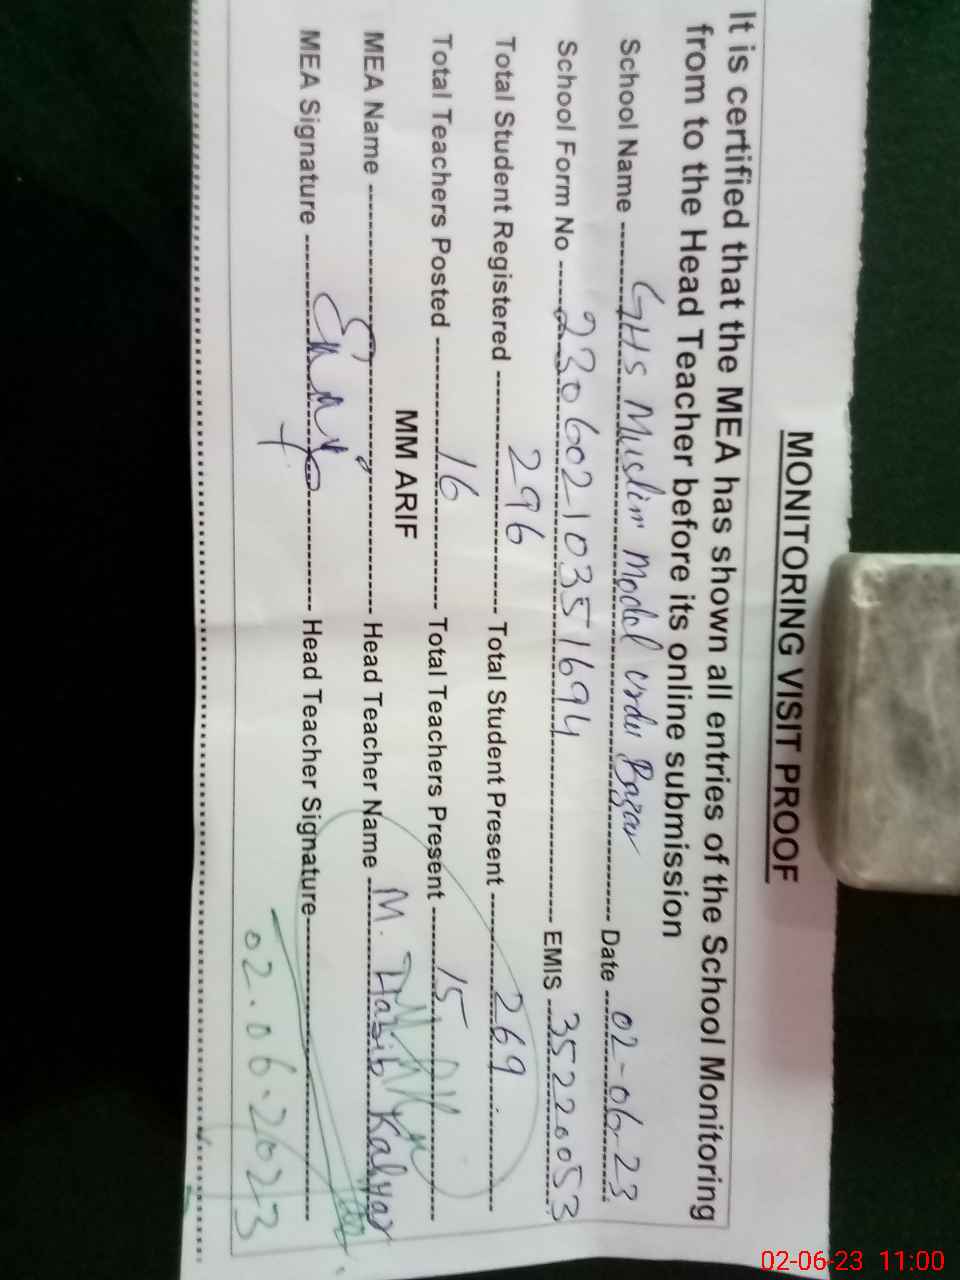 MONITORING VISIT PROOF
It is certified that the MEA has shown all entries of the School Monitoring
from to the Head Teacher before its online submission
School Name GHS Muslim Model Urdu Bazar Date 02-06-23
School Form No 230602-10351694 EMIS 35220053
Total Student Registered 296 Total Student Present 269
Total Teachers Posted 16 Total Teachers Present 15
MM ARIF
MEA Name Head Teacher Name M. Habib Kalyar
MEA Signature Head Teacher Signature
02.06.2023
02-06-23 11:00